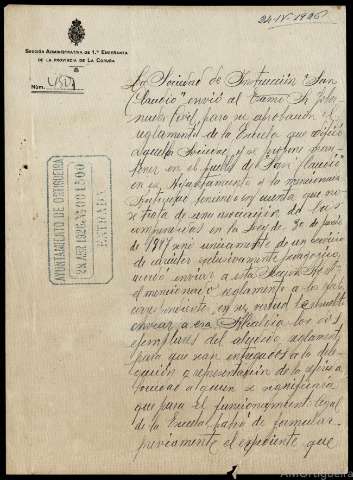 24-IV-1926
SECCIÓN ADMINISTRATIVA DE 1.ª ENSEÑANZA
DE LA PROVINCIA DE LA CORUÑA
Núm.
La Sociedad de Instrucción "San
Claudio" envió al Excmo Sr. Gober-
nador Civil, para su aprobación el
reglamento de la Escuela que edificó
aquella Sociedad, y se propone
en el pueblo de "San Claudio"
en ese Ayuntamiento y la mencionada
teniendo en cuenta que no
se trata de una asociación de las
comprendidas en la Ley de 30 de Junio
de 1887 sino únicamente de un servicio
de carácter exclusivamente pedagógico,
acordó enviar a esta Sección
el mencionado reglamento a los efectos
y en su virtud he resuelto
enviar a esa Alcaldía los dos
ejemplares del aludido reglamento
para que sean entregados a la dele-
gación o representación de la aludida
Sociedad a quien se significará
que para el funcionamiento legal
de la Escuela habrá de formular
previamente el expediente que
AYUNTAMIENTO DE ORTIGUEIRA
24 ABR 1926
ENTRADA
AMOrtigueira